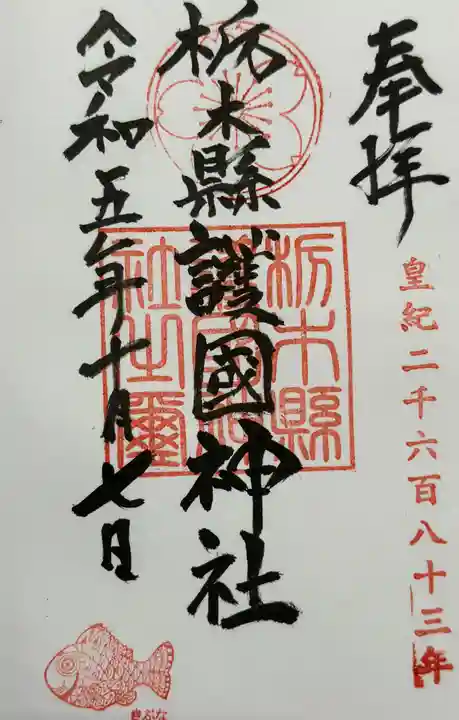 奉拝
皇紀二千六百八十三年
栃木縣護國神社
栃木縣
護國神
社之璽
令和五年十月七日
きぶな